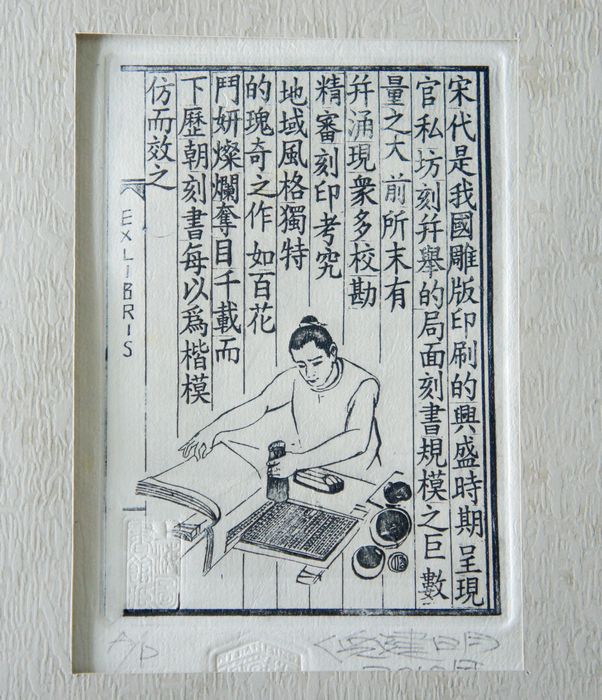 宋代是我國雕版印刷的興盛時期呈現
官私坊刻幷舉的局面刻書規模之巨數
量之大前所末有
幷涌現衆多校勘
精審刻印考究
地域風格獨特
的瑰奇之作如百花
鬥妍燦爛奪目千載而
下歷朝刻書每以爲楷模
仿而效之
EXLIBRIS
A/P